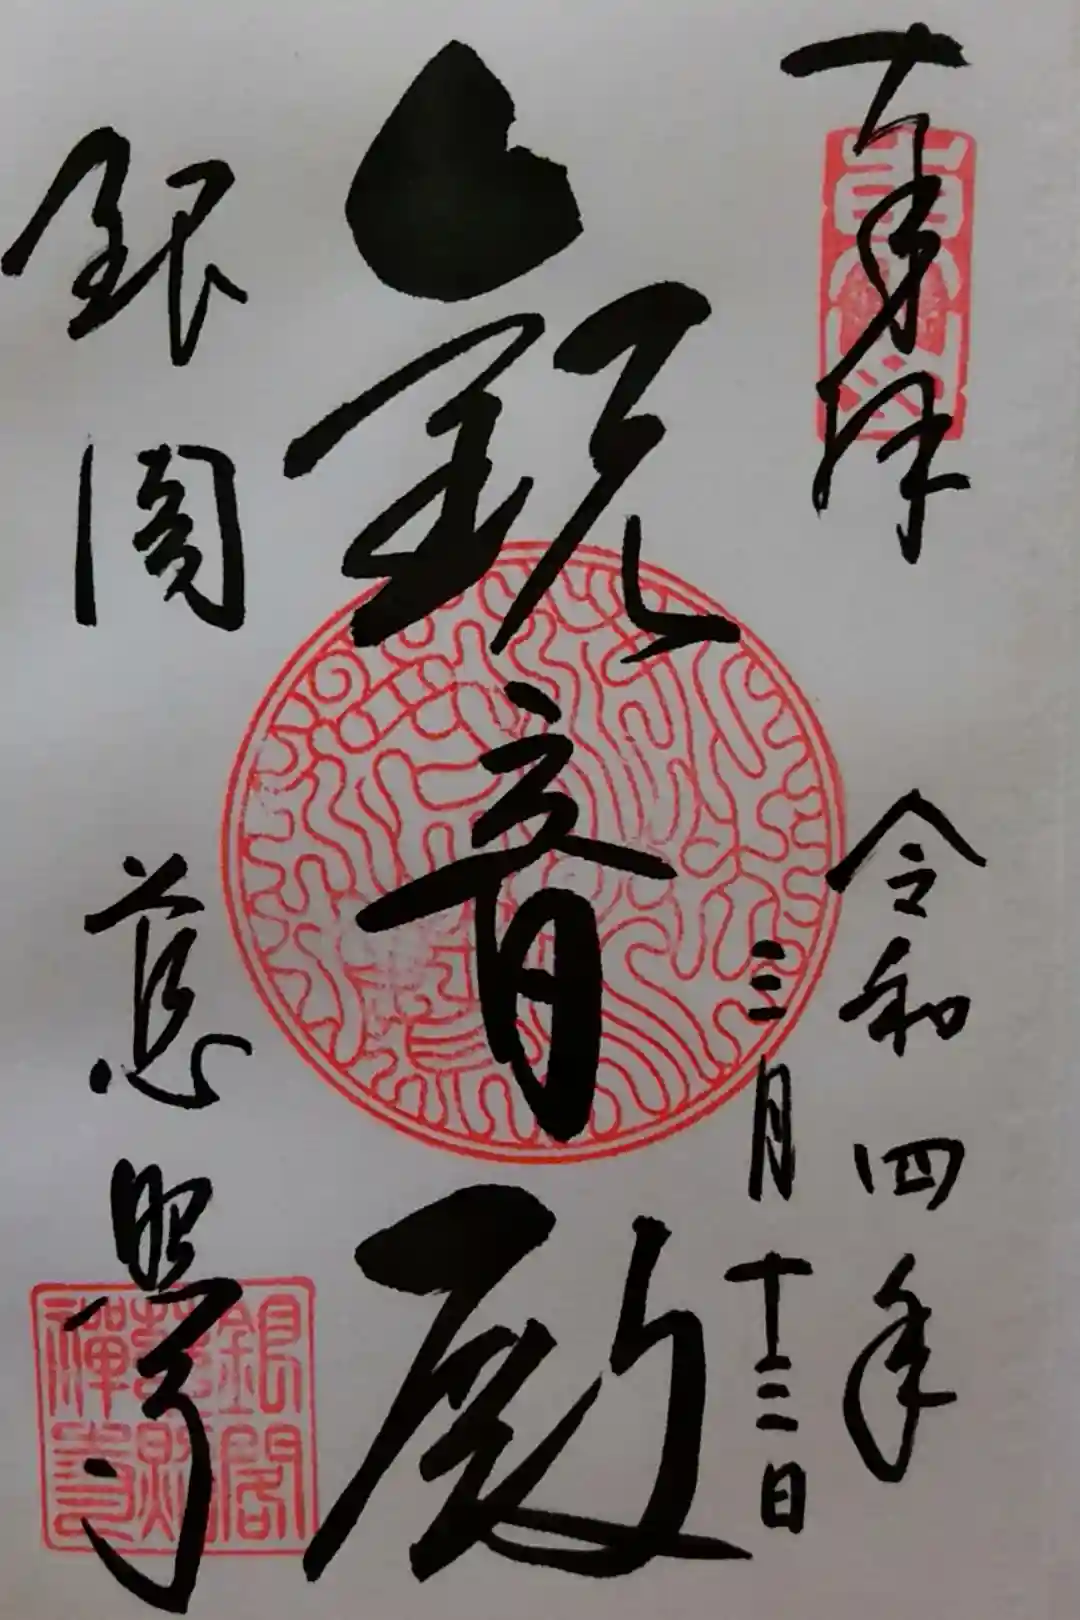 奉拝
令和四年
三月十三日
観音殿
銀閣
慈照寺
銀閣
慈照
禅寺